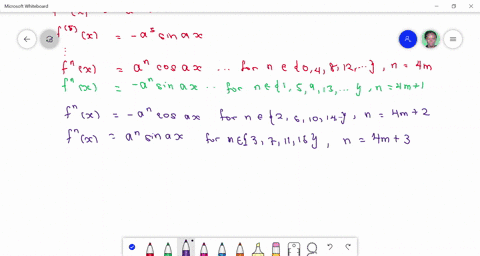 Microsoft Whiteboard
f⁽⁵⁾(x) = -a⁵ sin ax
⋮
fⁿ(x) = aⁿ cos ax ... for n ∈ {0, 4, 8, 12, ...}, n = 4m
fⁿ(x) = -aⁿ sin ax ... for n ∈ {1, 5, 9, 13, ... }, n = 4m+1
fⁿ(x) = -aⁿ cos ax for n ∈ {2, 6, 10, 14}, n = 4m + 2
fⁿ(x) = aⁿ sin ax for n ∈ {3, 7, 11, 15}, n = 4m + 3